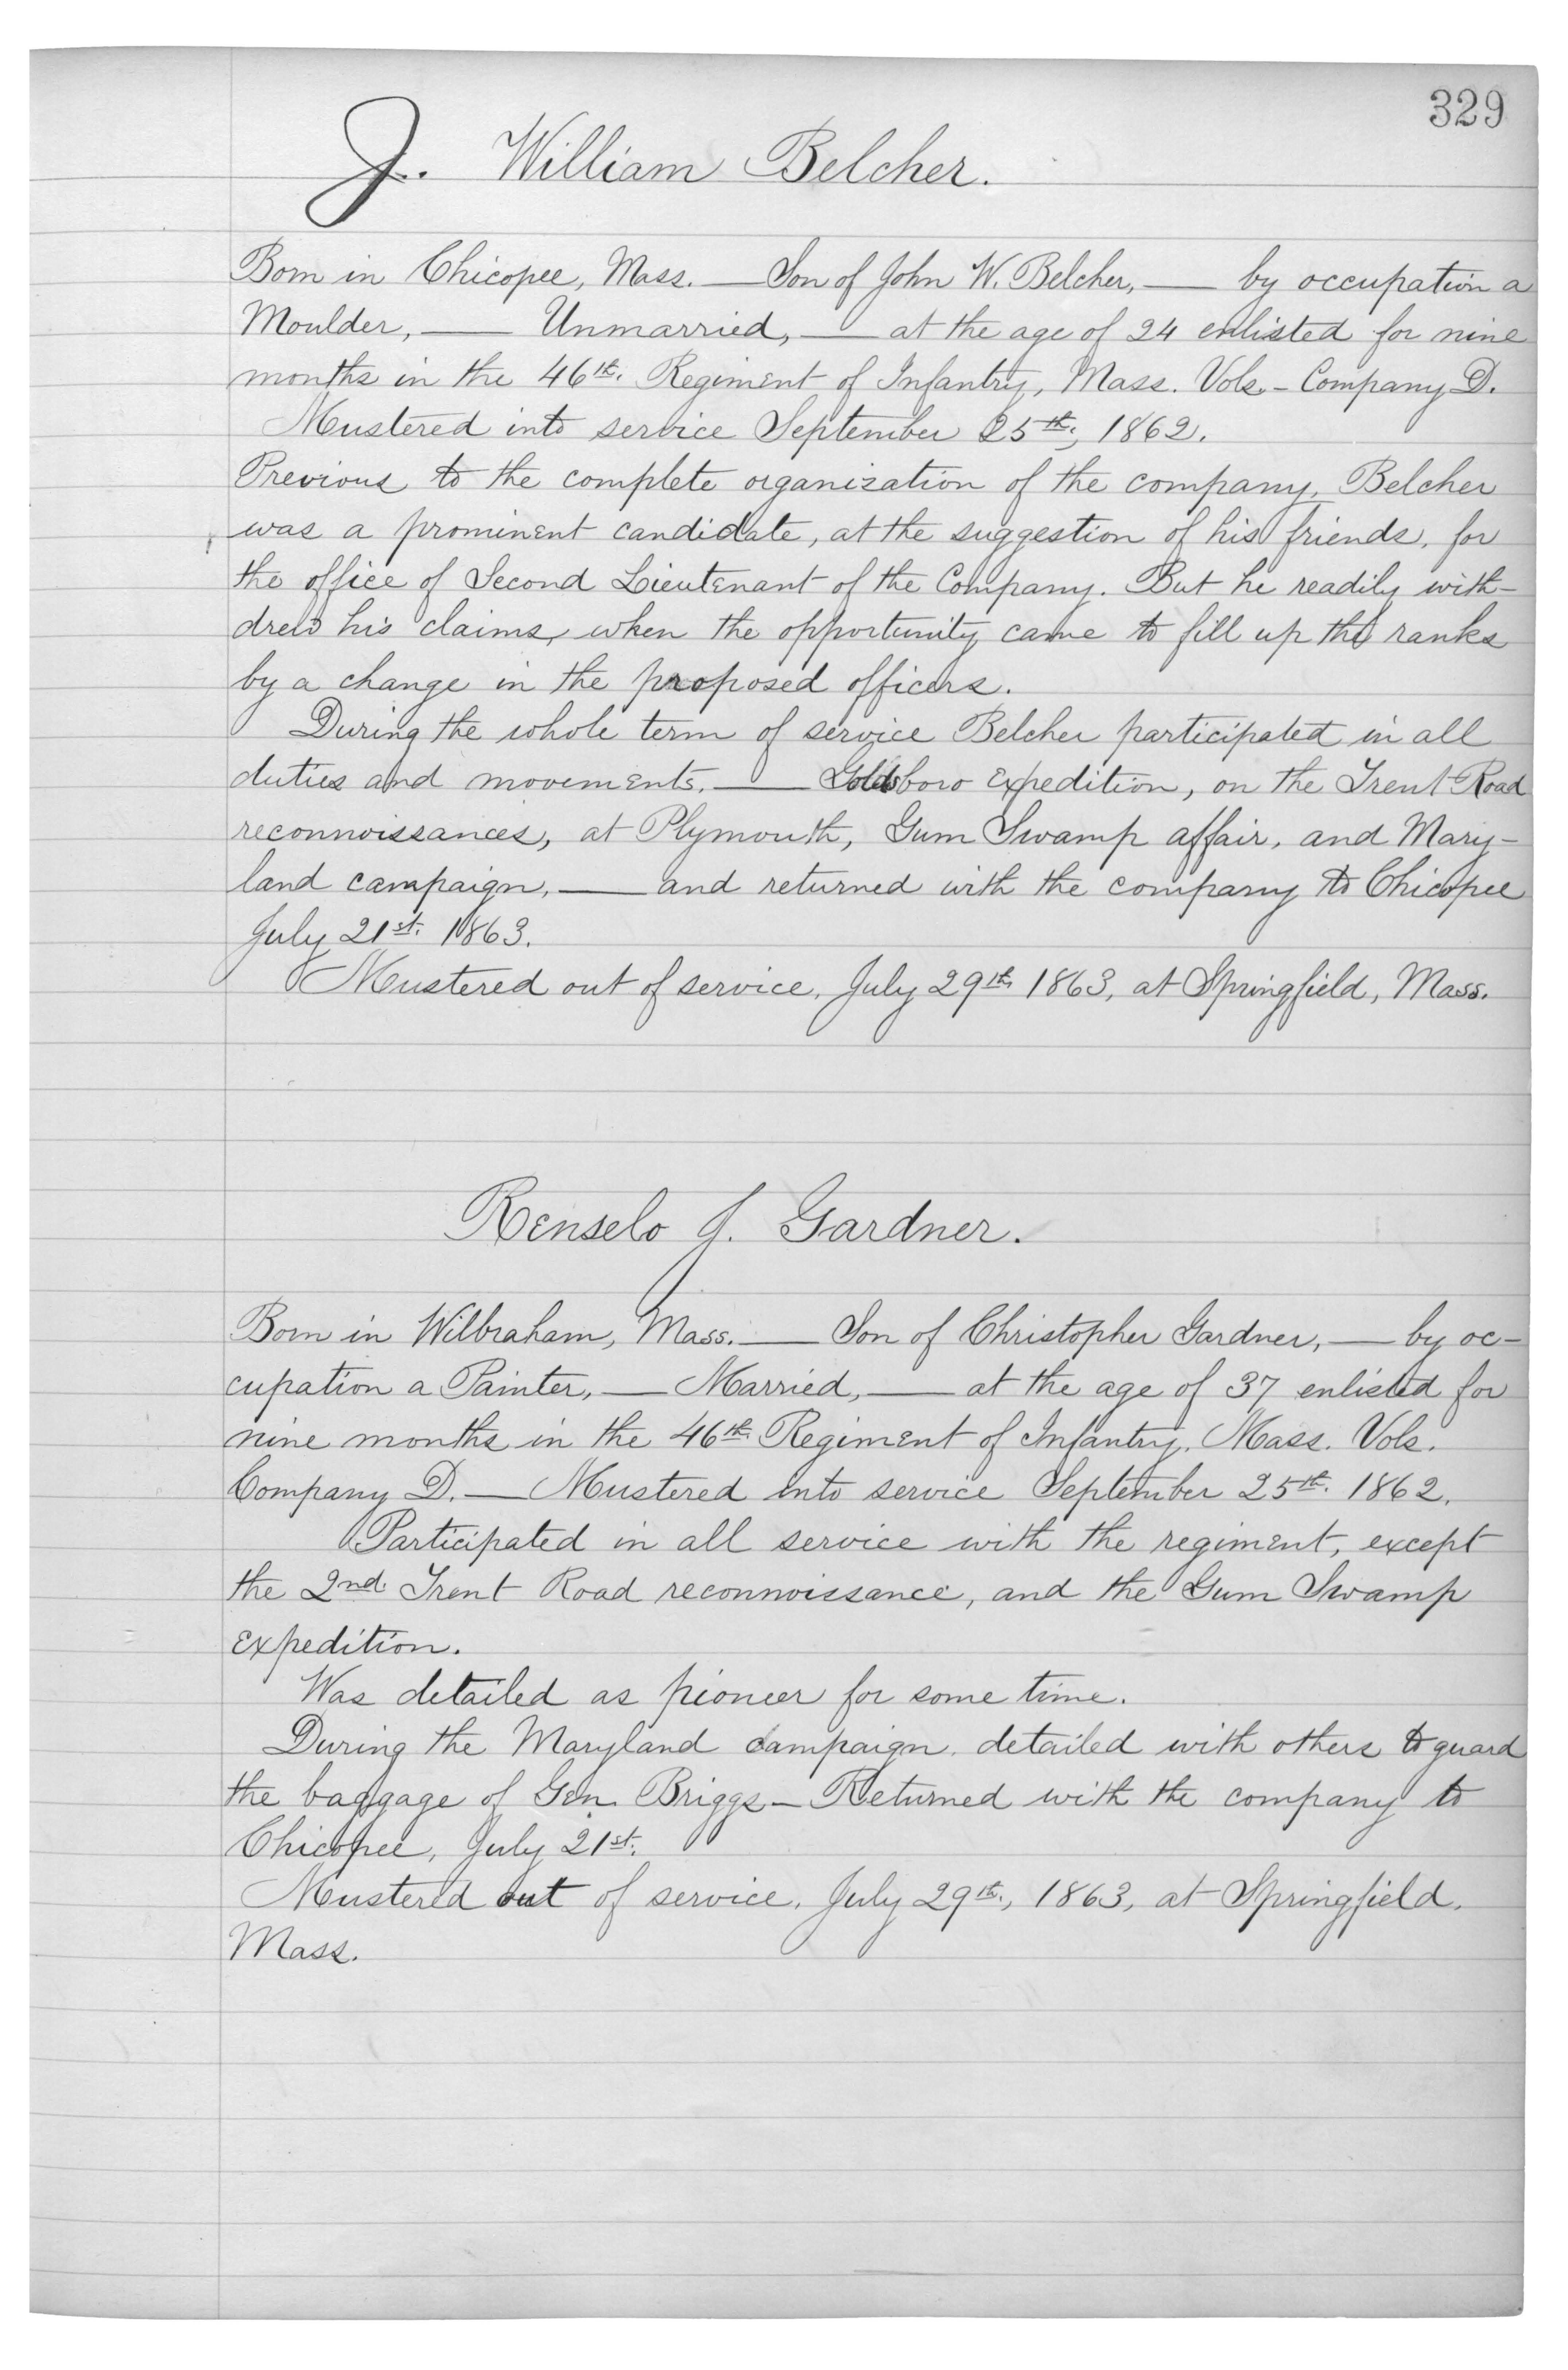 329
J. William Belcher.
Born in Chicopee, Mass. — Son of John W. Belcher, — by occupation a
Moulder, — Unmarried, — at the age of 24 enlisted for nine
months in the 46th. Regiment of Infantry, Mass. Vols. - Company D.
Mustered into service September 25th, 1862.
Previous to the complete organization of the company, Belcher
was a prominent candidate, at the suggestion of his friends, for
the office of Second Lieutenant of the Company. But he readily with-
drew his claims, when the opportunity came to fill up the ranks
by a change in the proposed officers.
During the whole term of service Belcher participated in all
duties and movements. — Goldsboro Expedition, on the Trent Road
reconnoissances, at Plymouth, Gum Swamp affair, and Mary-
land campaign, — and returned with the company to Chicopee
July 21st. 1863.
Mustered out of service, July 29th 1863, at Springfield, Mass.
Renselo J. Gardner.
Born in Wilbraham, Mass. — Son of Christopher Gardner, — by oc-
cupation a Painter, — Married, — at the age of 37 enlisted for
nine months in the 46th. Regiment of Infantry, Mass. Vols.
Company D. — Mustered into service September 25th. 1862.
Participated in all service with the regiment, except
the 2nd. Trent Road reconnoissance, and the Gum Swamp
Expedition.
Was detailed as pioneer for some time.
During the Maryland campaign, detailed with others to guard
the baggage of Gen. Briggs — Returned with the company to
Chicopee, July 21st.
Mustered out of service, July 29th., 1863, at Springfield,
Mass.